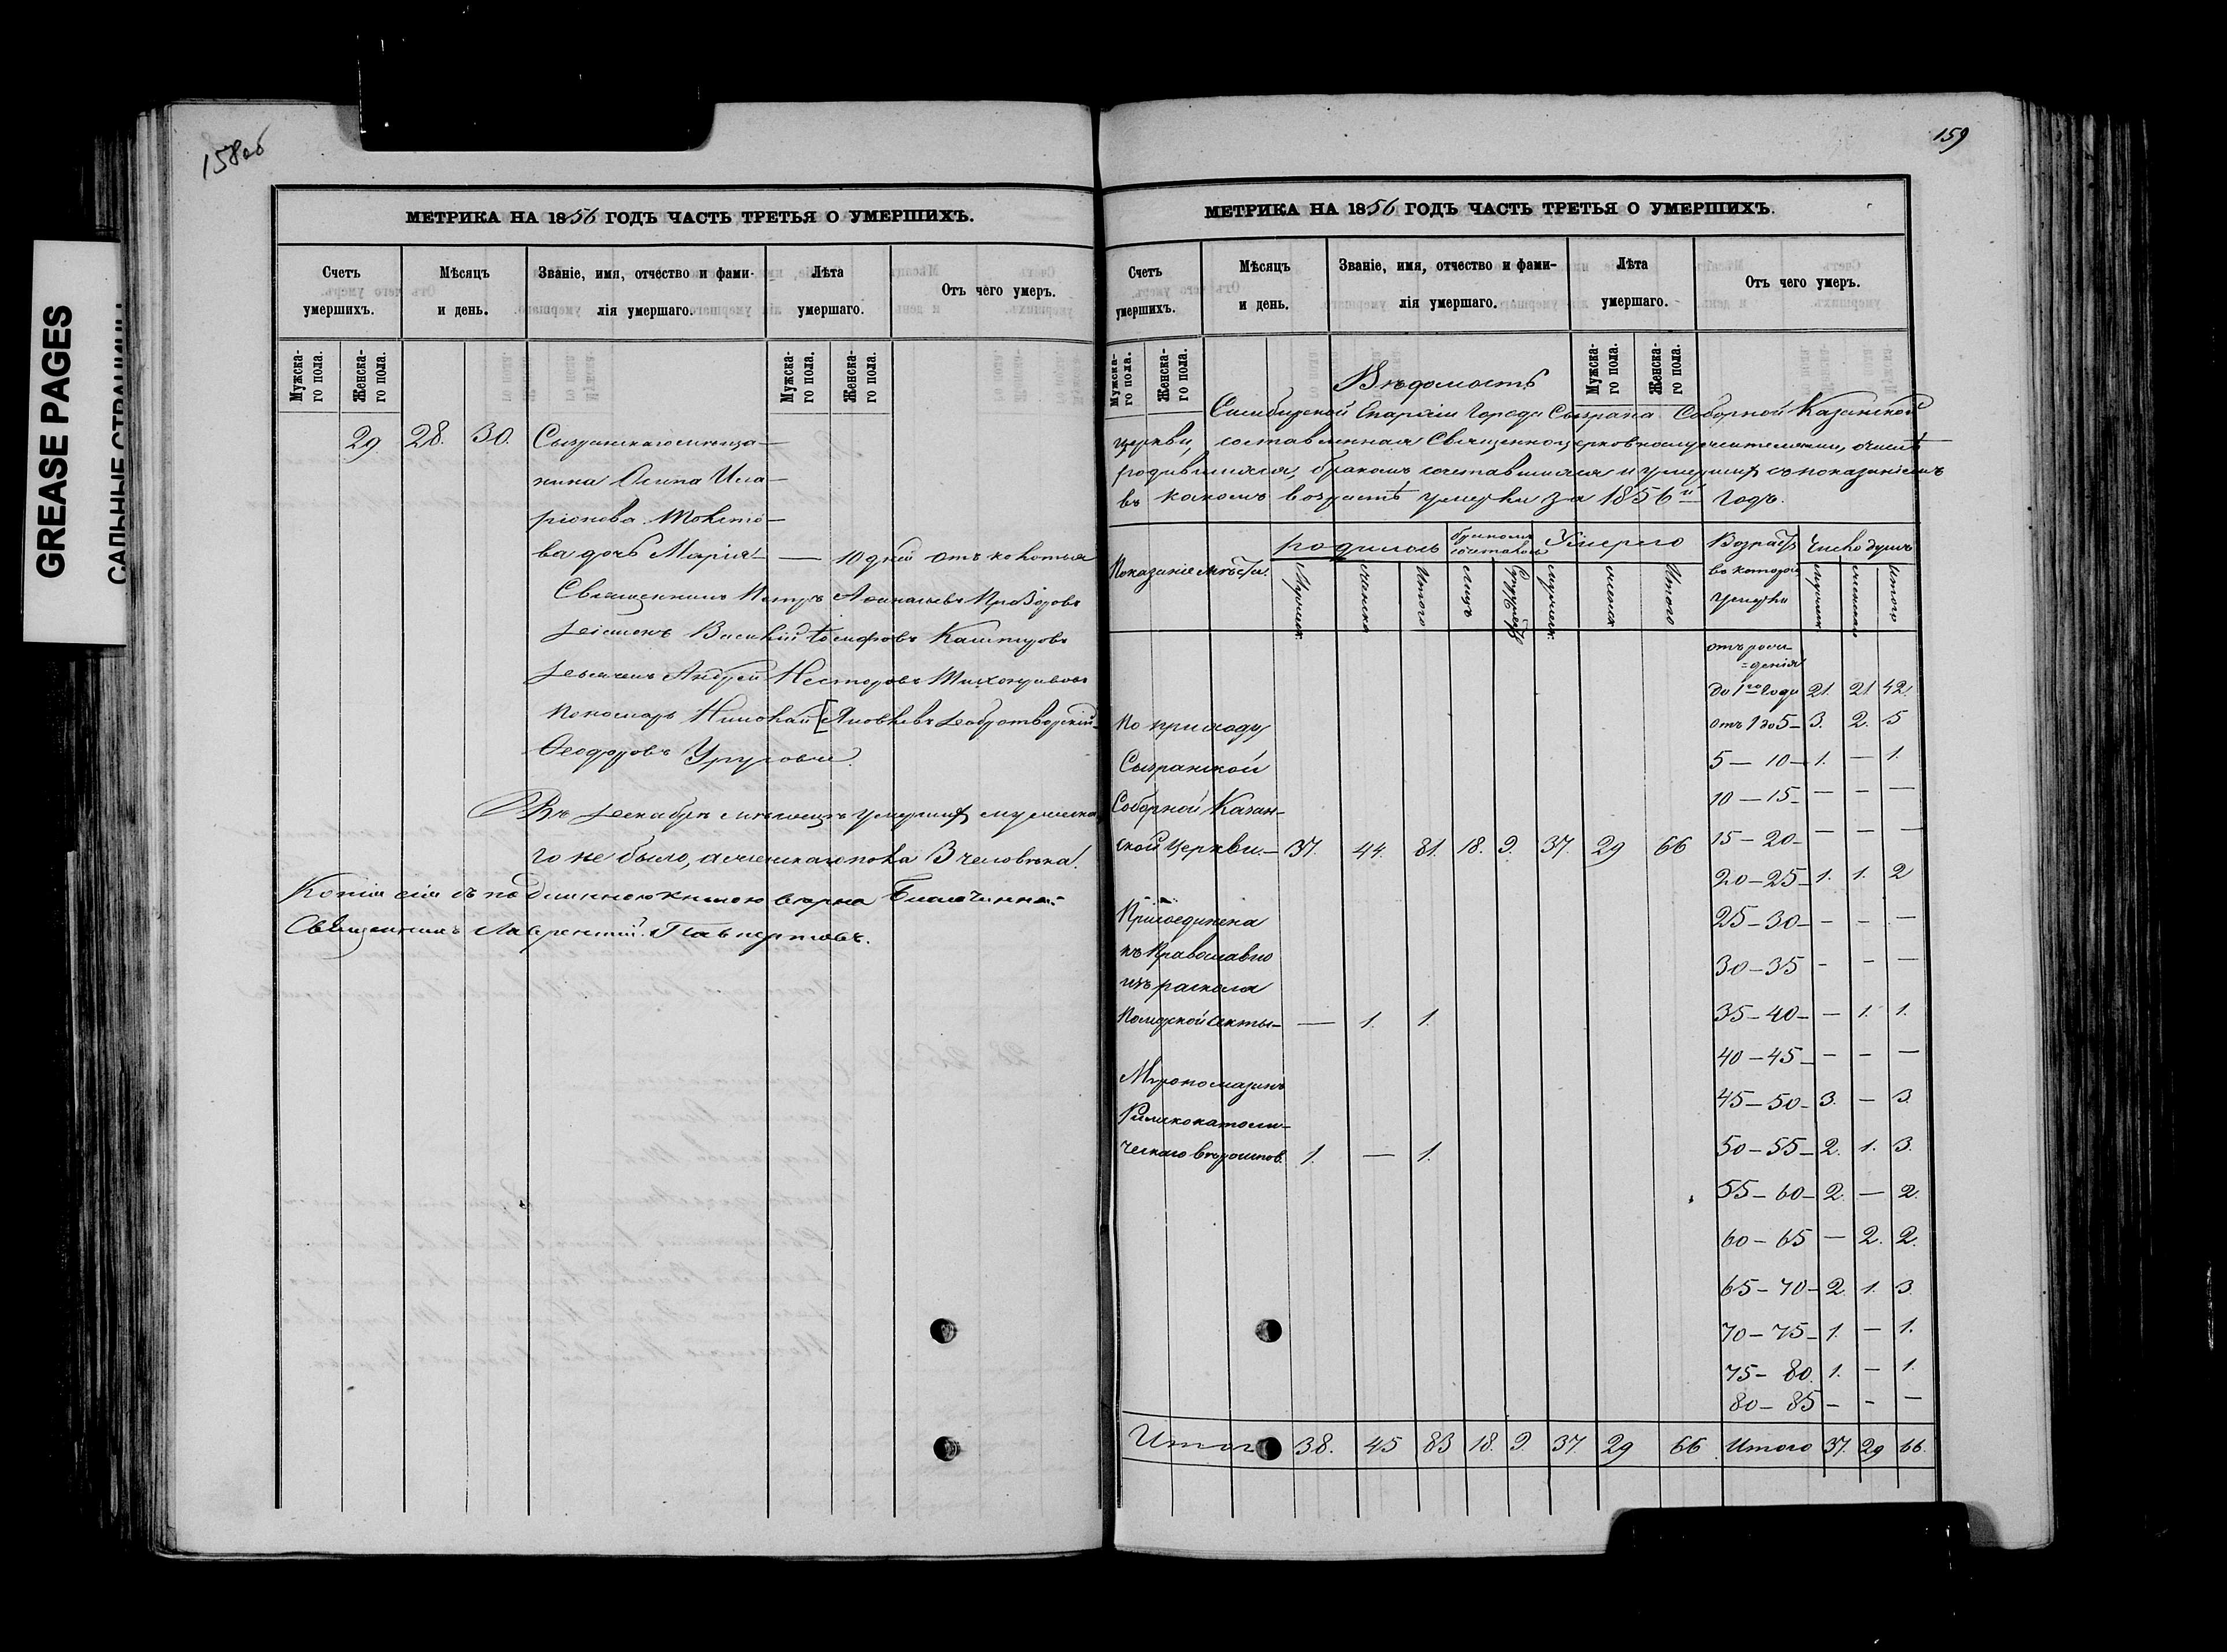 GREASE PAGES
САЛЬНЫЕ СТРАНИЦЫ
158об
МЕТРИКА НА 1856 ГОДЪ ЧАСТЬ ТРЕТЬЯ О УМЕРШИХЪ.
Счетъ умершихъ. Мѣсяцъ и день. Званіе, имя, отчество и фамилія умершаго. Лѣта умершаго. Отъ чего умеръ.
Мужскаго пола. Женскаго пола. Мужскаго пола. Женскаго пола.
29 28. 30. Сызранскаго мѣща-
нина Осипа Ила-
ріонова
ва дочь Марія — 10 дней отъ
Священникъ Петръ
Василій Іосифовъ
Андрей Несторовъ
Пономарь Николай [Яковлевъ
Феодоровъ
Въ Декабрѣ мѣсяцѣ умершихъ мужеска
го не было, а женскаго пола 3 человѣка.
Копія сія съ подлинною книгою вѣрна
Священникъ Лаврентій
159
МЕТРИКА НА 1856 ГОДЪ ЧАСТЬ ТРЕТЬЯ О УМЕРШИХЪ.
Счетъ умершихъ. Мѣсяцъ и день. Званіе, имя, отчество и фамилія умершаго. Лѣта умершаго. Отъ чего умеръ.
Мужскаго пола. Женскаго пола. Мужскаго пола. Женскаго пола.
Вѣдомость
Симбирской Епархіи Города Сызрана Соборной Казанской
церкви, составленная Священноцерковнослужителями, о числѣ
родившихся, бракомъ сочетавшихся и умершихъ съ показаніемъ
въ какомъ возрастѣ умерли за 1856й годъ.
Показаніе мѣста. родилось бракомъ Умерло Возрастъ Число душъ
въ котором
умерли
Итого Лицъ Итого Итого
отъ рож-
=денія
до 1го года 21. 21 42.
По приходу отъ 1 до 5 – 3. 2. 5
Сызранской 5 – 10 – 1. — 1.
Соборной Казан- 10 – 15 – — — —
ской Церкви. – 37. 44. 81. 18. 9. 37. 29 66 15 – 20 – — — —
20 – 25 – 1. 1. 2
Присоединена 25 – 30 – – – —
къ Православію 30 – 35 – – —
изъ раскола
Поморской секты – — 1. 1. 35 – 40 – — 1. 1.
40 – 45 – – – —
Мѵропомазанъ 45 – 50 – 3. — 3.
Римскокатоли-
ческаго вѣроисповѣд. 1. — 1. 50 – 55 – 2. 1. 3.
55 – 60 – 2. — 2.
60 – 65 — 2. 2.
65 – 70 – 2. 1. 3.
70 – 75 – 1. — 1.
75 – 80. 1. – 1.
80 – 85 – – —
Итого 38. 45 83 18. 9. 37 29 66 Итого 37. 29 66.